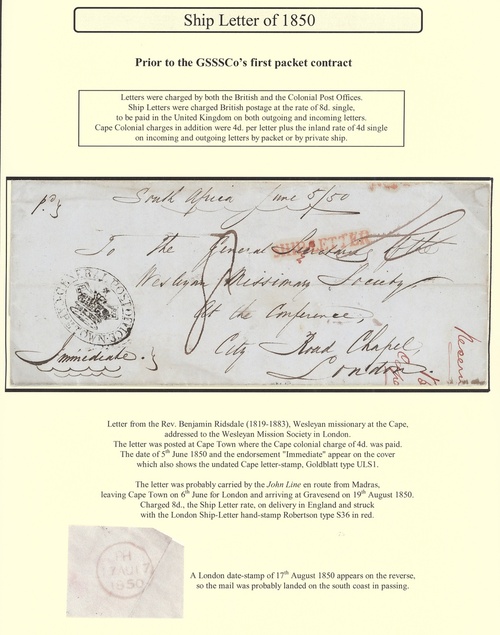 Ship Letter of 1850
Prior to the GSSSCo's first packet contract
Letters were charged by both the British and the Colonial Post Offices.
Ship Letters were charged British postage at the rate of 8d. single,
to be paid in the United Kingdom on both outgoing and incoming letters.
Cape Colonial charges in addition were 4d. per letter plus the inland rate of 4d single
on incoming and outgoing letters by packet or by private ship.
South Africa June 5/50
SHIP LETTER
To the General Secretary
Wesleyan Missionary Society
At the Conference,
City Road Chapel
London
Immediate.
8
GENERAL POST OFFICE
Letter from the Rev. Benjamin Ridsdale (1819-1883), Wesleyan missionary at the Cape,
addressed to the Wesleyan Mission Society in London.
The letter was posted at Cape Town where the Cape colonial charge of 4d. was paid.
The date of 5th June 1850 and the endorsement "Immediate" appear on the cover
which also shows the undated Cape letter-stamp, Goldblatt type ULS1.
The letter was probably carried by the John Line en route from Madras,
leaving Cape Town on 6th June for London and arriving at Gravesend on 19th August 1850.
Charged 8d., the Ship Letter rate, on delivery in England and struck
with the London Ship-Letter hand-stamp Robertson type S36 in red.
17 AU 17
1850
A London date-stamp of 17th August 1850 appears on the reverse,
so the mail was probably landed on the south coast in passing.